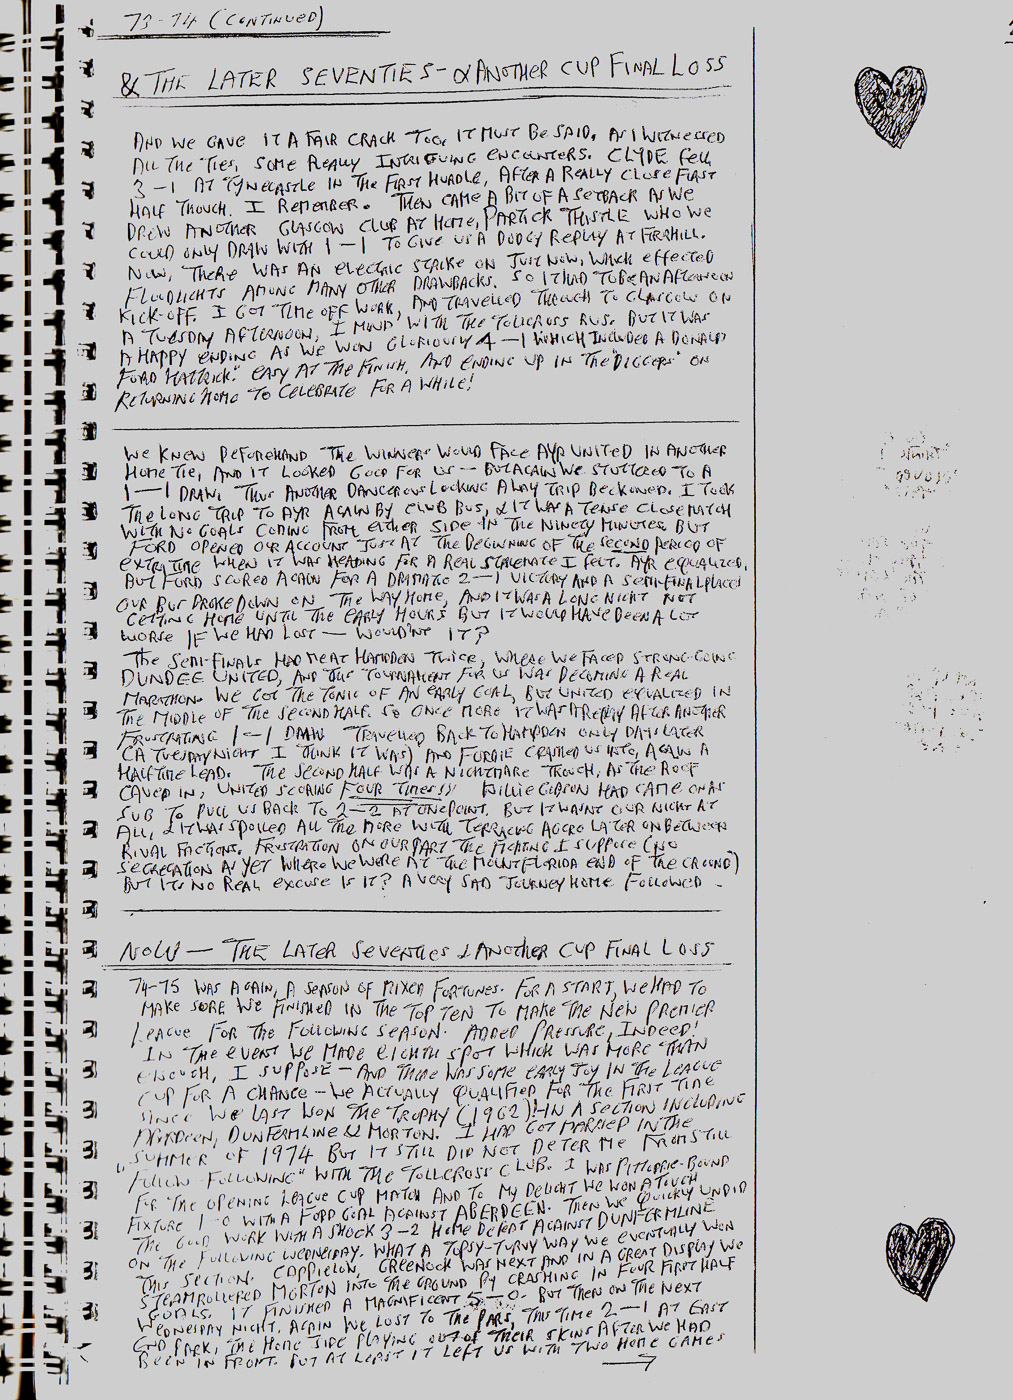 73-74 (CONTINUED)
& THE LATER SEVENTIES - & ANOTHER CUP FINAL LOSS
AND WE GAVE IT A FAIR CRACK TOO, IT MUST BE SAID, AS I WITNESSED
ALL THE TIES, SOME REALLY INTRIGUING ENCOUNTERS. CLYDE FELL
3-1 AT TYNECASTLE IN THE FIRST HURDLE, AFTER A REALLY CLOSE FIRST
HALF THOUGH. I REMEMBER. THEN CAME A BIT OF A SETBACK AS WE
DREW ANOTHER GLASGOW CLUB AT HOME, PARTICK THISTLE WHO WE
COULD ONLY DRAW WITH 1-1 TO GIVE US A DODGY REPLAY AT FIRHILL.
NOW, THERE WAS AN ELECTRIC STRIKE ON JUST NOW, WHICH EFFECTED
FLOODLIGHTS AMONG MANY OTHER DRAWBACKS. SO IT HAD TO BE AN AFTERNOON
KICK-OFF. I GOT TIME OFF WORK, AND TRAVELLED THROUGH TO GLASGOW ON
A TUESDAY AFTERNOON, I MIND WITH THE TOLLCROSS BUS. BUT IT WAS
A HAPPY ENDING AS WE WON GLORIOUSLY 4-1 WHICH INCLUDED A DONALD
FORD HATTRICK. EASY AT THE FINISH, AND ENDING UP IN THE "DIGGERS" ON
RETURNING HOME TO CELEBRATE FOR A WHILE!
WE KNEW BEFOREHAND THE WINNERS WOULD FACE AYR UNITED IN ANOTHER
HOME TIE, AND IT LOOKED GOOD FOR US -- BUT AGAIN WE STUTTERED TO A
1-1 DRAW, THUS ANOTHER DANGEROUS LOOKING AWAY TRIP BECKONED. I TOOK
THE LONG TRIP TO AYR AGAIN BY CLUB BUS, & IT WAS A TENSE CLOSE MATCH
WITH NO GOALS COMING FROM EITHER SIDE IN THE NINETY MINUTES. BUT
FORD OPENED OUR ACCOUNT JUST AT THE BEGINNING OF THE SECOND PERIOD OF
EXTRA TIME WHEN IT WAS HEADING FOR A REAL STALEMATE I FELT. AYR EQUALIZED,
BUT FORD SCORED AGAIN FOR A DRAMATIC 2-1 VICTORY AND A SEMI-FINAL PLACE!
OUR BUS BROKE DOWN ON THE WAY HOME, AND IT WAS A LONG NIGHT NOT
GETTING HOME UNTIL THE EARLY HOURS BUT IT WOULD HAVE BEEN A LOT
WORSE IF WE HAD LOST - WOULDN'T IT?
THE SEMI-FINALS HAD ME AT HAMPDEN TWICE, WHERE WE FACED STRONG-GOING
DUNDEE UNITED, AND THIS TOURNAMENT FOR US WAS BECOMING A REAL
MARATHON. WE GOT THE TONIC OF AN EARLY GOAL, BUT UNITED EQUALIZED IN
THE MIDDLE OF THE SECOND HALF. SO ONCE MORE IT WAS A REPLAY AFTER ANOTHER
FRUSTRATING 1-1 DRAW. TRAVELLED BACK TO HAMPDEN ONLY DAYS LATER
(A TUESDAY NIGHT I THINK IT WAS) AND FORDIE CRAMED US INTO, AGAIN A
HALFTIME LEAD. THE SECOND HALF WAS A NIGHTMARE THOUGH, AS THE ROOF
CAVED IN, UNITED SCORING FOUR TIMES!! WILLIE GIBSON HAD CAME ON AS
SUB TO PULL US BACK TO 2-2 AT ONE POINT. BUT IT WASNT OUR NIGHT AT
ALL, & IT WAS SPOILED ALL THE MORE WITH TERRACING AGGRO LATER ON BETWEEN
RIVAL FACTIONS. FRUSTRATION ON OUR PART THE FIGHTING I SUPPOSE (NO
SEGREGATION AS YET WHERE WE WERE AT THE MOUNT FLORIDA END OF THE GROUND)
BUT ITS NO REAL EXCUSE IS IT? A VERY SAD JOURNEY HOME FOLLOWED -
NOW - THE LATER SEVENTIES & ANOTHER CUP FINAL LOSS
74-75 WAS AGAIN, A SEASON OF MIXED FORTUNES. FOR A START, WE HAD TO
MAKE SURE WE FINISHED IN THE TOP TEN TO MAKE THE NEW PREMIER
LEAGUE FOR THE FOLLOWING SEASON. ADDED PRESSURE, INDEED!
IN THE EVENT WE MADE EIGHTH SPOT WHICH WAS MORE THAN
ENOUGH, I SUPPOSE - AND THERE WAS SOME EARLY JOY IN THE LEAGUE
CUP FOR A CHANGE - WE ACTUALLY QUALIFIED FOR THE FIRST TIME
SINCE WE LAST WON THE TROPHY (1962)! IN A SECTION INCLUDING
ABERDEEN, DUNFERMLINE & MORTON. I HAD GOT MARRIED IN THE
SUMMER OF 1974 BUT IT STILL DID NOT DETER ME FROM STILL
"FOLLOW-FOLLOWING" WITH THE TOLLCROSS CLUB. I WAS PITTODRIE-BOUND
FOR THE OPENING LEAGUE CUP MATCH AND TO MY DELIGHT WE WON A TOUGH
FIXTURE 1-0 WITH A FORD GOAL AGAINST ABERDEEN. THEN WE QUICKLY UNDID
THE GOOD WORK WITH A SHOCK 3-2 HOME DEFEAT AGAINST DUNFERMLINE
ON THE FOLLOWING WEDNESDAY. WHAT A TOPSY-TURVY WAY WE EVENTUALLY WON
THIS SECTION. CAPPIELOW, GREENOCK WAS NEXT AND IN A GREAT DISPLAY WE
STEAMROLLERED MORTON INTO THE GROUND BY CRASHING IN FOUR FIRST HALF
GOALS. IT FINISHED A MAGNIFICENT 5-0. BUT THEN ON THE NEXT
WEDNESDAY NIGHT, AGAIN WE LOST TO THE PARS, THIS TIME 2-1 AT EAST
END PARK, THE HOME SIDE PLAYING OUT OF THEIR SKINS AFTER WE HAD
BEEN IN FRONT. BUT AT LEAST IT LEFT US WITH TWO HOME GAMES